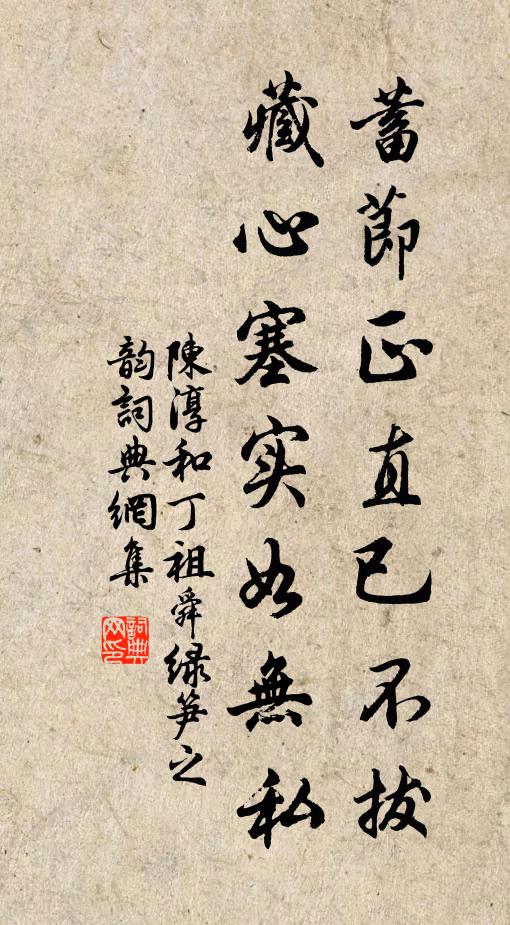 蓄節正直已不拔
藏心塞实如無私
陳淳和丁祖舜绿笋之
韵詞典網集
詞典網印